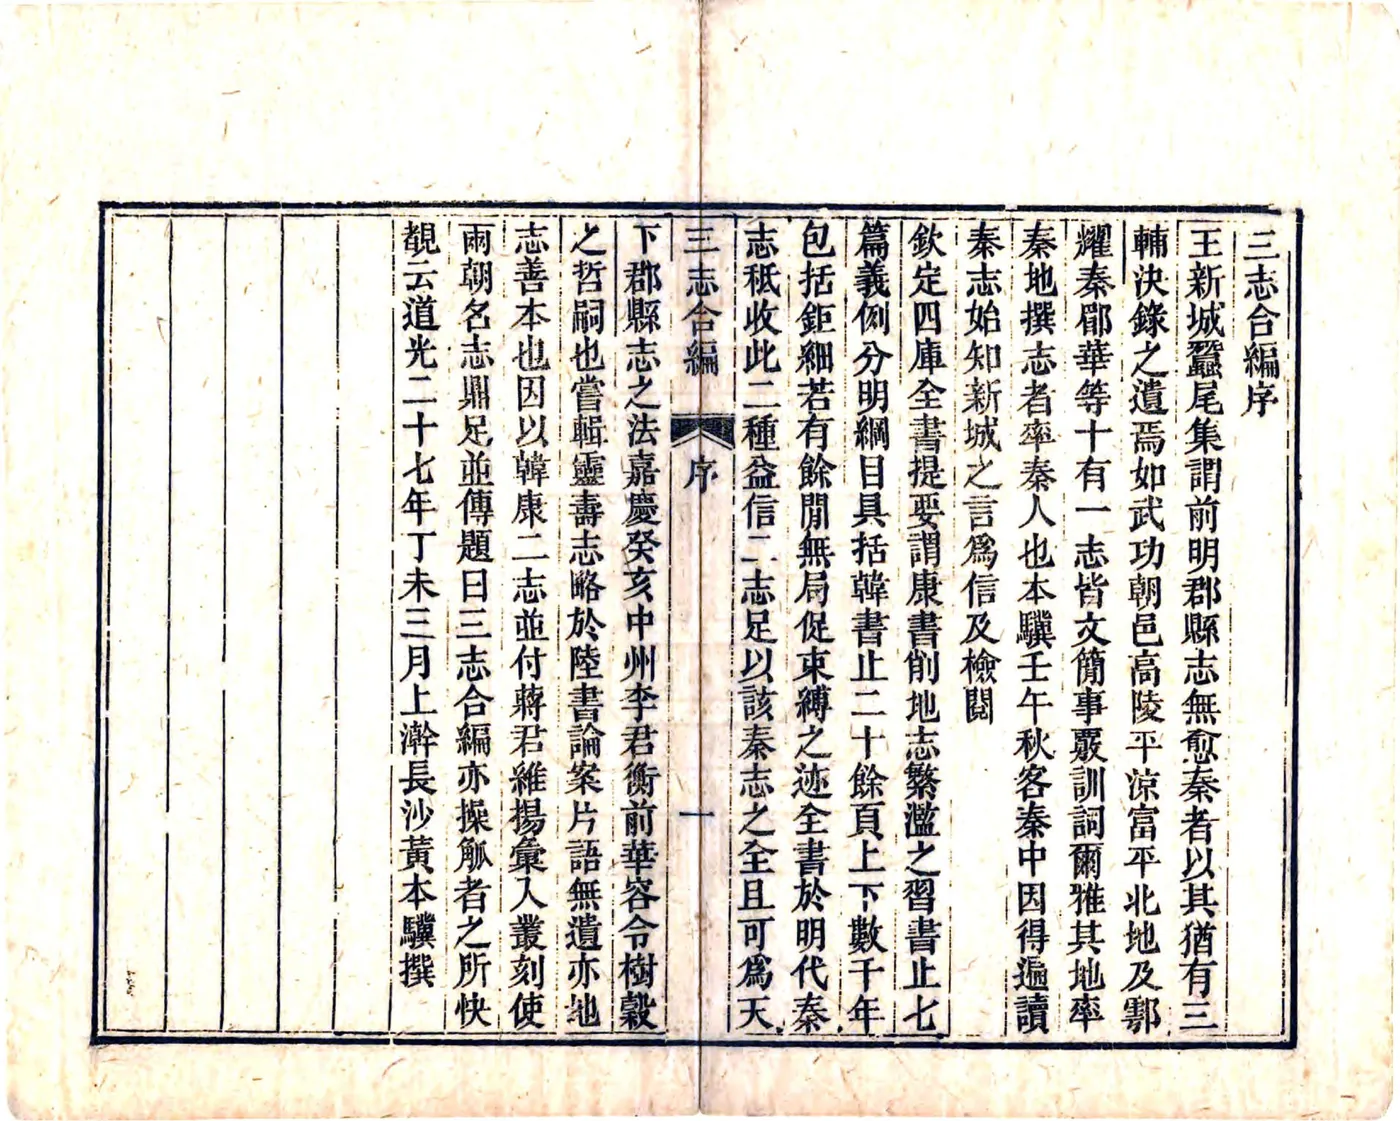 三志合編序
王新城蠶尾集謂前明郡縣志無愈秦者以其猶有三
輔決錄之遺焉如武功朝邑高陵平涼富平北地及鄠
耀秦郿華等十有一志皆文簡事覈訓詞爾雅其地率
秦地撰志者率秦人也本驥壬午秋客秦中因得遍讀
秦志始知新城之言爲信及檢閱
欽定四庫全書提要謂康書削地志繁濫之習書止七
篇義例分明綱目具括韓書止二十餘頁上下數千年
包括鉅細若有餘閒無局促束縛之迹全書於明代秦
志秪收此二種益信二志足以該秦志之全且可爲天
三志合編 序 一
下郡縣志之法嘉慶癸亥中州李君衡前華容令樹穀
之哲嗣也嘗輯靈壽志略於陸書論案片語無遺亦地
志善本也因以韓康二志並付蔣君維揚彙入叢刻使
兩朝名志鼎足並傳題曰三志合編亦操觚者之所快
覩云道光二十七年丁未三月上澣長沙黃本驥撰